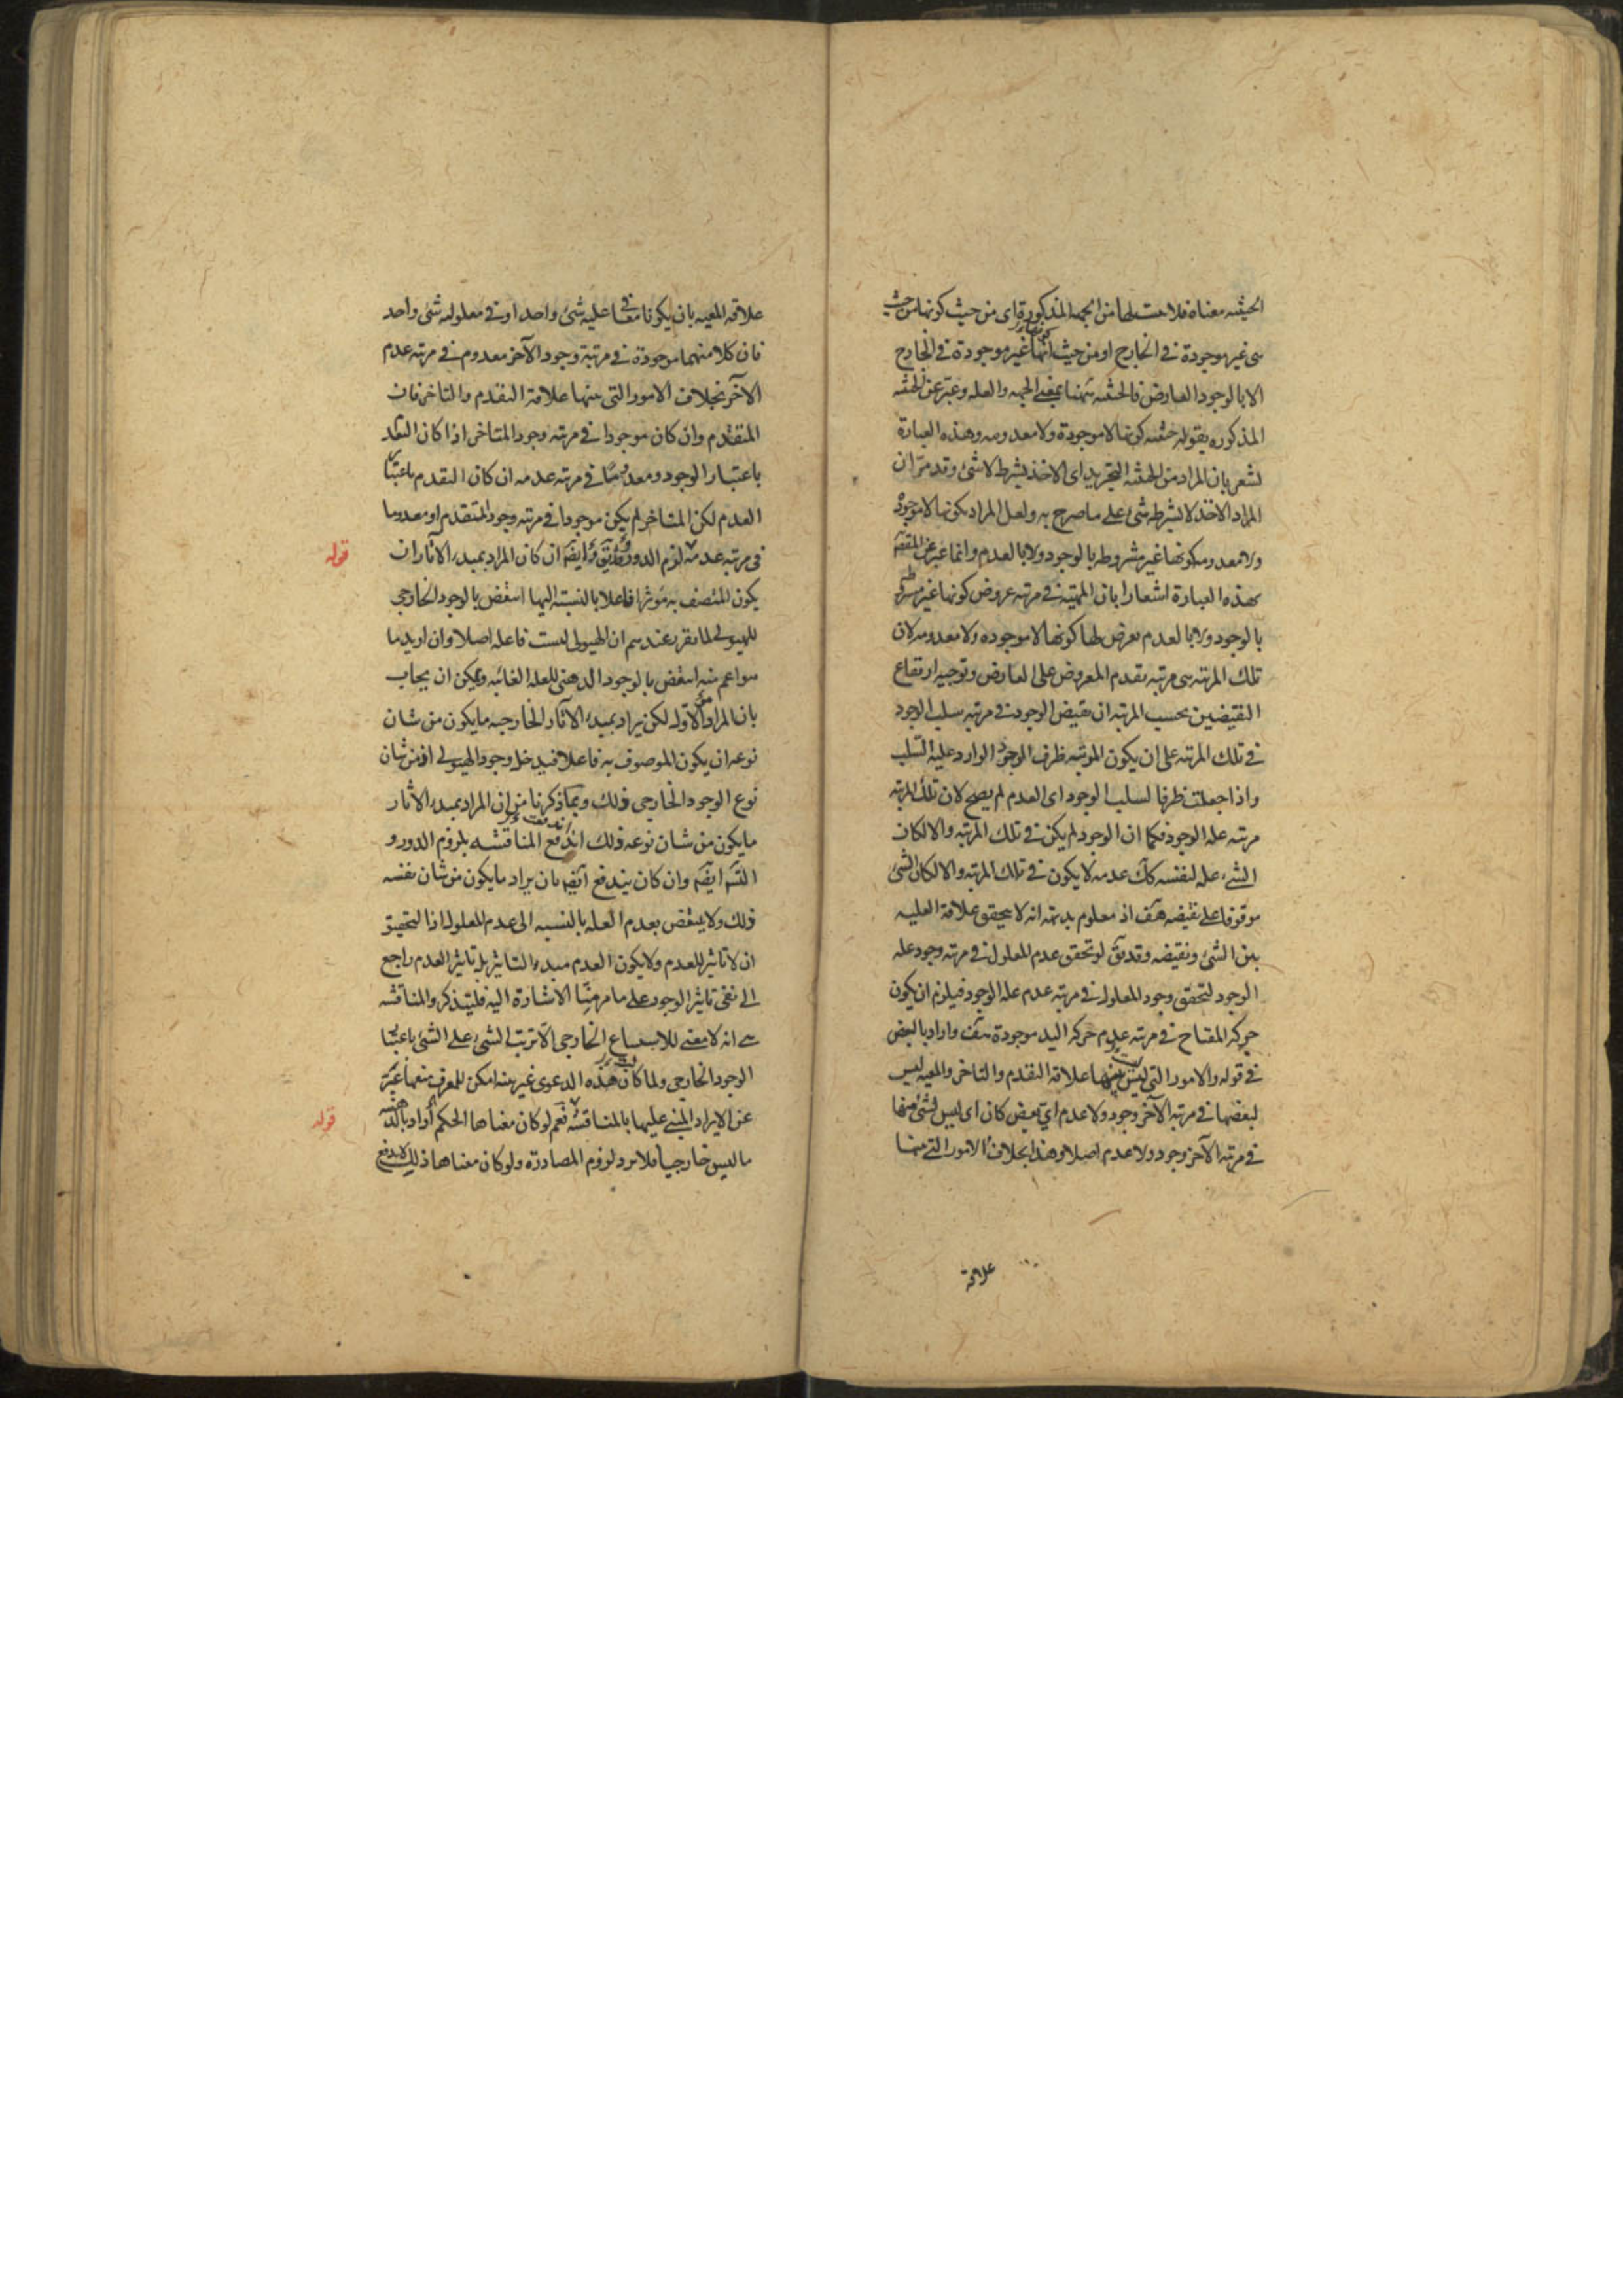 الحيثيه معناه فلا لها من الجهه المذكورة اى من حيث كونها من حيث
هى غير موجودة فى الخارج او من حيث انها غير موجودة فى الخارج
الا بالوجود العارض فالحيثيه ههنا بمعنى الجهه والعله وعبر عن الحيثيه
المذكوره بقوله حيثيه كونها لا موجودة ولا معدومه وهذه العبارة
تشعر بان المراد من الحيثيه التجريد اى الاخذ بشرط لا شئ وقد مر ان
المراد الاخذ لا بشرط شئ على ما صرح به ولعل المراد بكونها لا موجودة
ولا معدومه كونها غير مشروطه بالوجود ولا بالعدم وانما عبر عن
بهذه العبارة اشعارا بان المهيه فى مرتبه عروض كونها غير مشروطه
بالوجود ولا بالعدم يعرض لها كونها لا موجوده ولا معدومه لان
تلك المرتبه هى مرتبه تقدم المعروض على العارض وتوجيه ارتفاع
النقيضين بحسب المرتبه ان نقيض الوجود فى مرتبه سلب الوجود
فى تلك المرتبه على ان يكون المرتبه ظرف الوجود الوارد عليه السلب
واذا جعلت ظرفا لسلب الوجود اى العدم لم يصح لان تلك المرتبه
مرتبه عله الوجود فكما ان الوجود لم يكن فى تلك المرتبه والا لكان
الشئ عله لنفسه كك عدمه لا يكون فى تلك المرتبه والا لكان الشئ
موقوفا على نقيضه هف اذ معلوم بديهة انه لا يتحقق علاقة العليه
بين الشئ ونقيضه وقد يق لو تحقق عدم المعلول فى مرتبه وجود عله
الوجود لتحقق وجود المعلول فى مرتبه عدم عله الوجود فيلزم ان يكون
حركه المفتاح فى مرتبه عدم حركه اليد موجودة هف واراد بالبعض
فى قوله والامور التى ليس بينها علاقة التقدم والتاخر والمعيه ليس
لبعضها فى مرتبه الآخر وجود ولا عدم اى بعض كان اى ليس لشئ منها
فى مرتبه الآخر وجود ولا عدم اصلا وهذا بخلاف الامور التى بينها
علاقة
علاقه المعيه بان يكونا معا فى عليه شئ واحد او فى معلوليه شئ واحد
فان كلا منهما موجودة فى مرتبة وجود الآخر معدوم فى مرتبه عدم
الآخر بخلاف الامور التى بينها علاقة التقدم والتاخر فان
المتقدم وان كان موجودا فى مرتبه وجود المتاخر اذا كان التقدم
باعتبار الوجود ومعدوما فى مرتبه عدمه ان كان التقدم باعتبار
العدم لكن المتاخر لم يكن موجودا فى مرتبه وجود المتقدم او معدوما
فى مرتبه عدمه قوله لزم الدور ايضا ان كان المراد بمبدء الآثار ان
يكون المتصف به مؤثرا فاعلا بالنسبة اليها انتقض بالوجود الخارجى
للهيولى لما تقرر عندهم ان الهيولى ليست فاعله اصلا وان اريد ما
هو اعم منه انتقض بالوجود الذهنى للعله الغائيه ويمكن ان يجاب
بان المراد هو الاول لكن يراد بمبدء الآثار الخارجيه ما يكون من شان
نوعه ان يكون الموصوف به فاعلا فيدخل وجود الهيولى اذ من شان
نوع الوجود الخارجى ذلك وبما ذكرنا من ان المراد بمبدء الآثار
ما يكون من شان نوعه ذلك اندفع المناقشه بلزوم الدور و
التس ايضا وان كان يندفع ايضا بان يراد ما يكون من شان نفسه
ذلك ولا ينتقض بعدم العله بالنسبه الى عدم المعلول اذ التحقيق
ان لا تاثير للعدم ولا يكون العدم مبدء التاثير بل تاثير العدم راجع
الى نفى تاثير الوجود على ما مر منا الاشارة اليه فليتذكر والمناقشه
هى انه لا معنى للاستتباع الخارجى الا ترتب الشئ على الشئ باعتبار
الوجود الخارجى ولما كان هذه الدعوى غير بينه امكن للمعرف منعها عبر
عن الايراد المبنى عليها بالمناقشه قوله نعم لو كان معناها الحكم اراد
ما ليس خارجيا فلا يرد لزوم المصادرة ولو كان معناها ذلك لاندفع